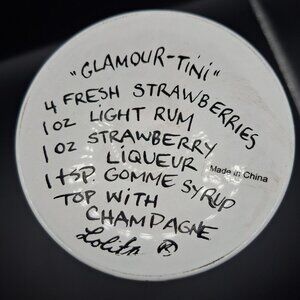 "GLAMOUR-TINI"
4 FRESH STRAWBERRIES
1 OZ LIGHT RUM
1 OZ STRAWBERRY
LIQUEUR
Made in China
1 tSP. GOMME SYRUP
TOP WITH
CHAMPAGNE
Lolita ®